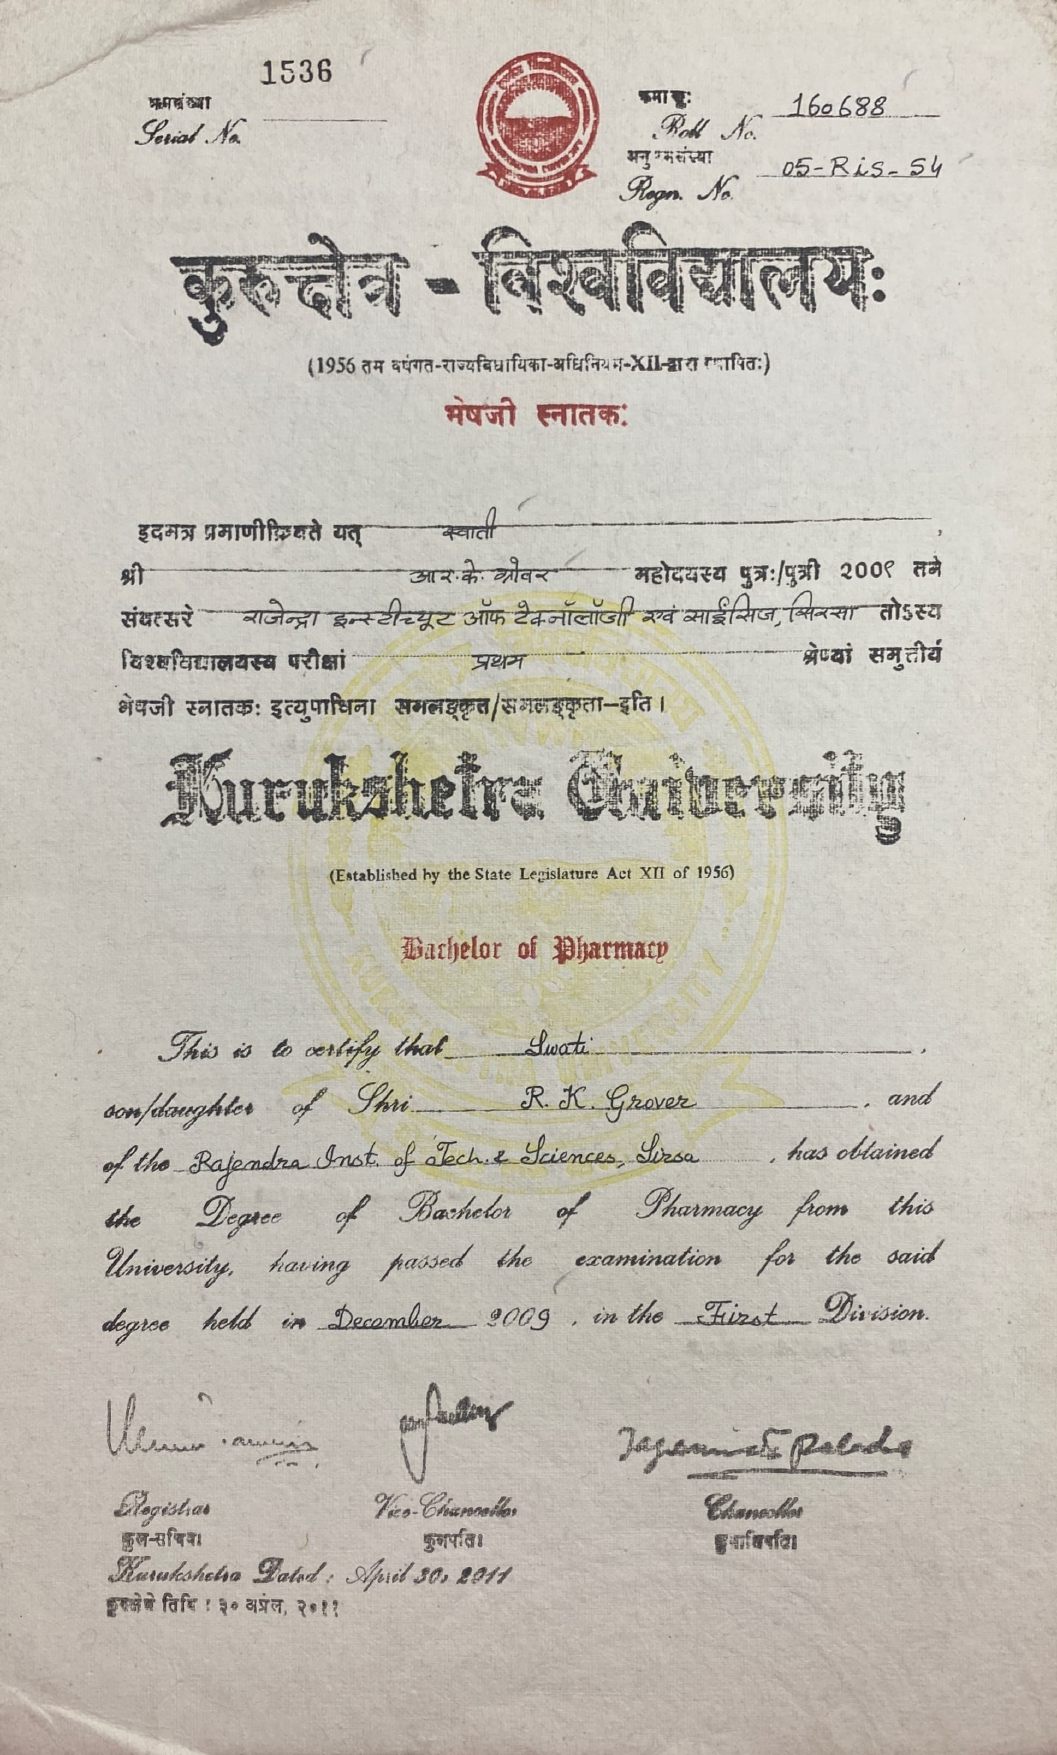 1536
क्रमसंख्या
Serial No.
क्रमाङ्कः 160688
Roll No.
अनुक्रमसंख्या
Regn. No. 05-Ris-54
कुरुक्षेत्र - विश्वविद्यालयः
(1956 तम वर्षगत-राज्यविधायिका-अधिनियम-XII-द्वारा स्थापितः)
भेषजी स्नातकः
इदमत्र प्रमाणीक्रियते यत् स्वाती ,
श्री आर. के. ग्रोवर महोदयस्य पुत्रः/पुत्री २००९ तमे
संवत्सरे राजेन्द्रा इन्स्टीच्यूट ऑफ टैक्नॉलॉजी एवं साईंसिज, सिरसा तोऽस्य
विश्वविद्यालयस्य परीक्षां प्रथम श्रेण्यां समुत्तीर्य
भेषजी स्नातकः इत्युपाधिना समलङ्कृत/समलङ्कृता–इति।
Kurukshetra University
(Established by the State Legislature Act XII of 1956)
Bachelor of Pharmacy
This is to certify that Swati ,
son/daughter of Shri R. K. Grover , and
of the Rajendra Inst. of Tech. & Sciences, Sirsa , has obtained
the Degree of Bachelor of Pharmacy from this
University, having passed the examination for the said
degree held in December 2009 , in the First Division.
Registrar Vice-Chancellor Chancellor
कुल-सचिवः कुलपतिः कुलाधिपतिः
Kurukshetra Dated : April 30, 2011
कुरुक्षेत्रे तिथि : ३० अप्रैल, २०११